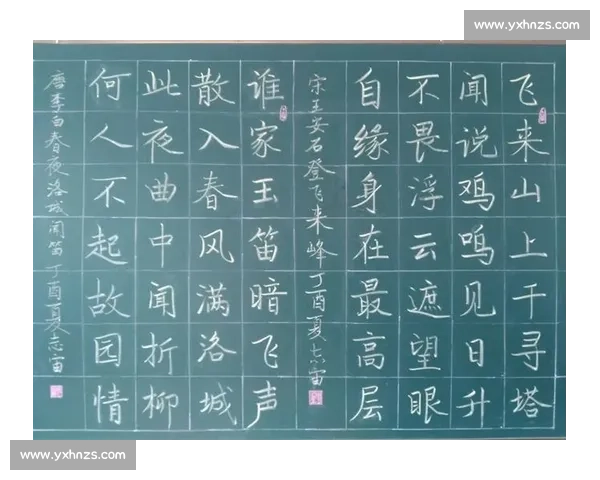 www.yxhnzs.com
飞来山上千寻塔
闻说鸡鸣见日升
不畏浮云遮望眼
自缘身在最高层
宋王安石登飞来峰 丁酉夏志宙
谁家玉笛暗飞声
散入春风满洛城
此夜曲中闻折柳
何人不起故园情
唐李白春夜洛城闻笛 丁酉夏志宙
www.yxhnzs.com